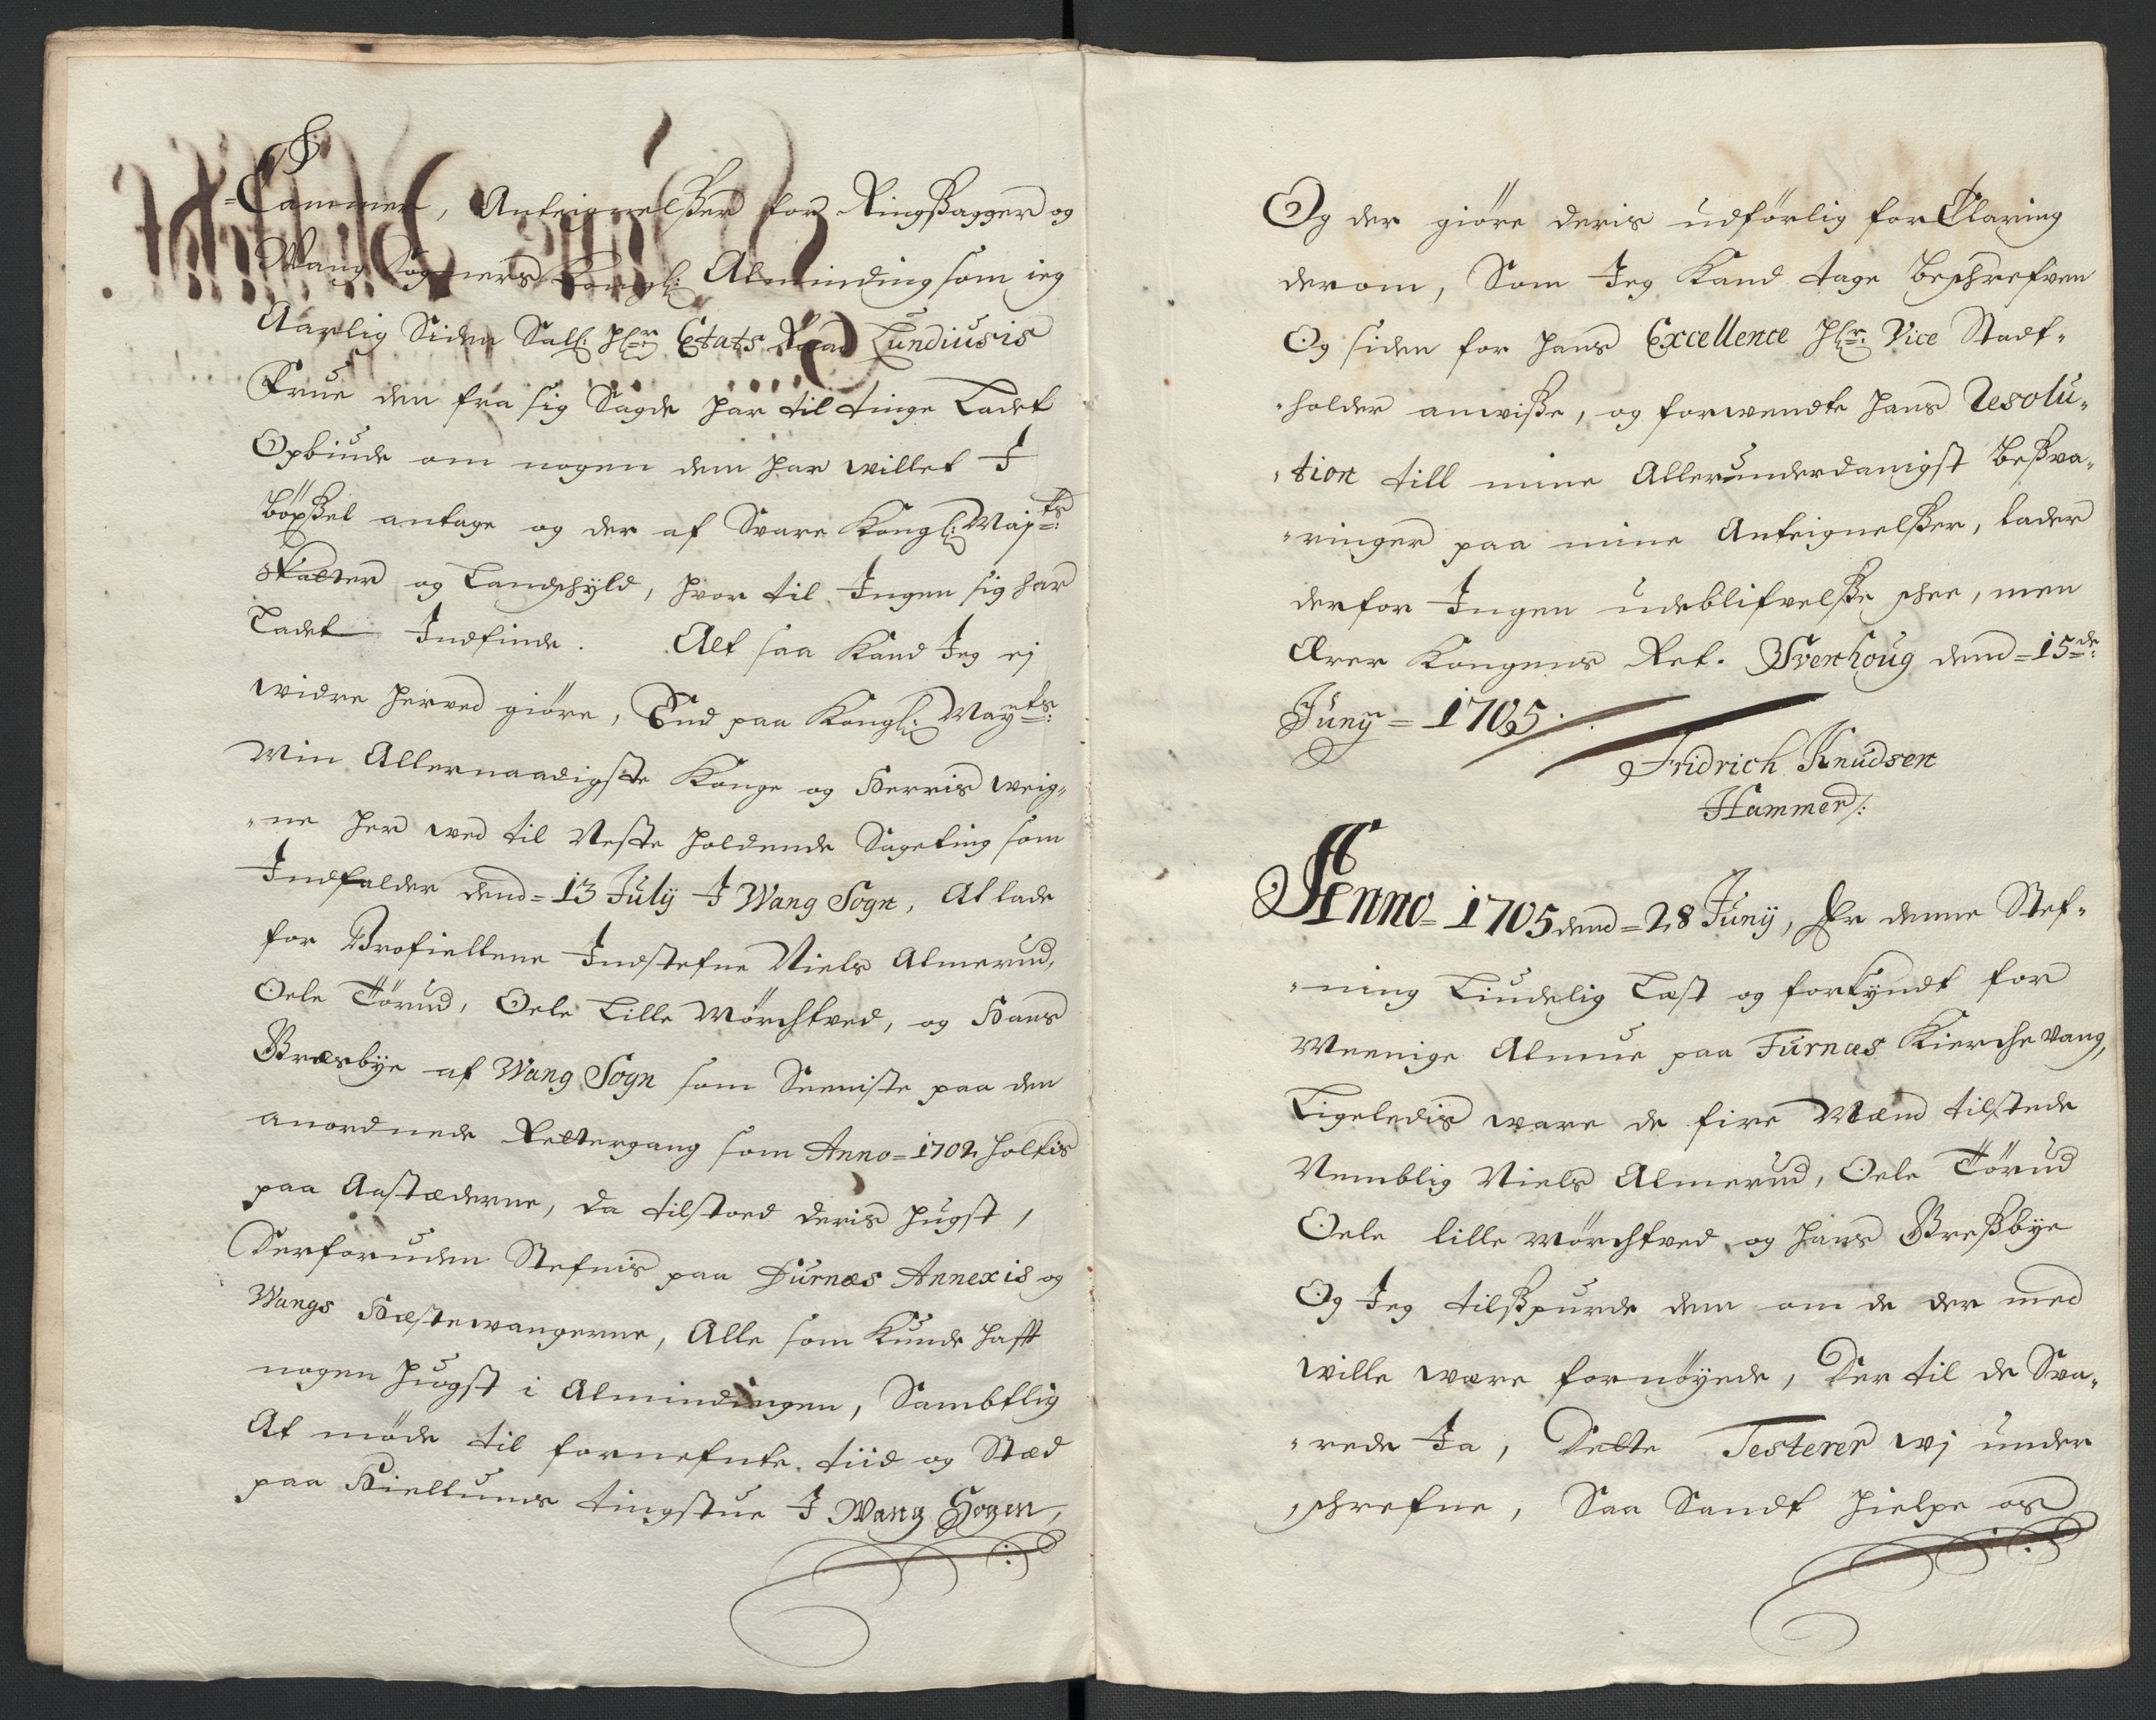 =Cammer, Anteignelsser for Ringsagger og
Wang Sogners Kongl: Alminding som ieg
Aarlig Siden Sal: Hr: Etats Raad Lundiusis
Frue den fra sig Sagde har til tinge Ladet
Opbiude om nogen dem har willet I
böxsel antage og der af Svare Kongl: Mayts:
skatter og Landschÿld, hvor til Ingen sig har
Ladet Indfinde. Alt saa Kand Jeg ej
widre herved giöre, End paa Kongl: Mayts:
Min Allernaadigste Konge og Herris weig„
„ne her ved til Neste holdende Sageting som
Indfalder dend=13 Julÿ I Wang Sogn, At lade
for Profiellene Indstefne Niels Almerud,
Oele Törud, Oele Lille Mörchtved, og Hans
Bræsbÿe af Wang Sogn som Seeniste paa den
anordnede Rettergang som Anno=1702 holtis
paa Aastæderne, da tilstoed deris hugst,
Derforuden Stefnis paa Furnæs Annexis og
Wangs Hæstewangerne, Alle som Kunde hafft
nogen hugst i Almindingen, Sambtlig
At møde til fornefnte tiid og Stæd
paa Kiellums tingstue I Wang Sogen,
Og der giöre deris udførlig forClaring
derom, Som Jeg Kand tage beschrefven
Og siden for hans Excellence Hr: Vice Stadt„
„holder anvisse, og forwendte hans Resolu„
„tion till mine Allerunderdanigst besva„
„ringer paa mine Anteignelsser, lader
derfor Ingen udeblifvelsse schee, men
Ærer Kongens Ret. Svenhoug dend=15de:
Junÿ=1705.
Fridrich Knudsen
Hammer/:
Anno=1705 dend=28 Junÿ, Er denne Stef„
„ning Liudelig Læst og forkÿndt for
Meenige Almue paa Furnæs Kierche Vang,
Ligeledis ware de fire Mænd tilstede
Nemblig Niels Almerud, Oele Törud
Oele lille Mörchtved og Hans Bressbÿe
Og Jeg tilsspurde dem om de der med
wille være fornöÿede, Der til de Sva„
„rede Ja, Dette Testerer wj under
„schrefne, Saa Sandt hielpe os